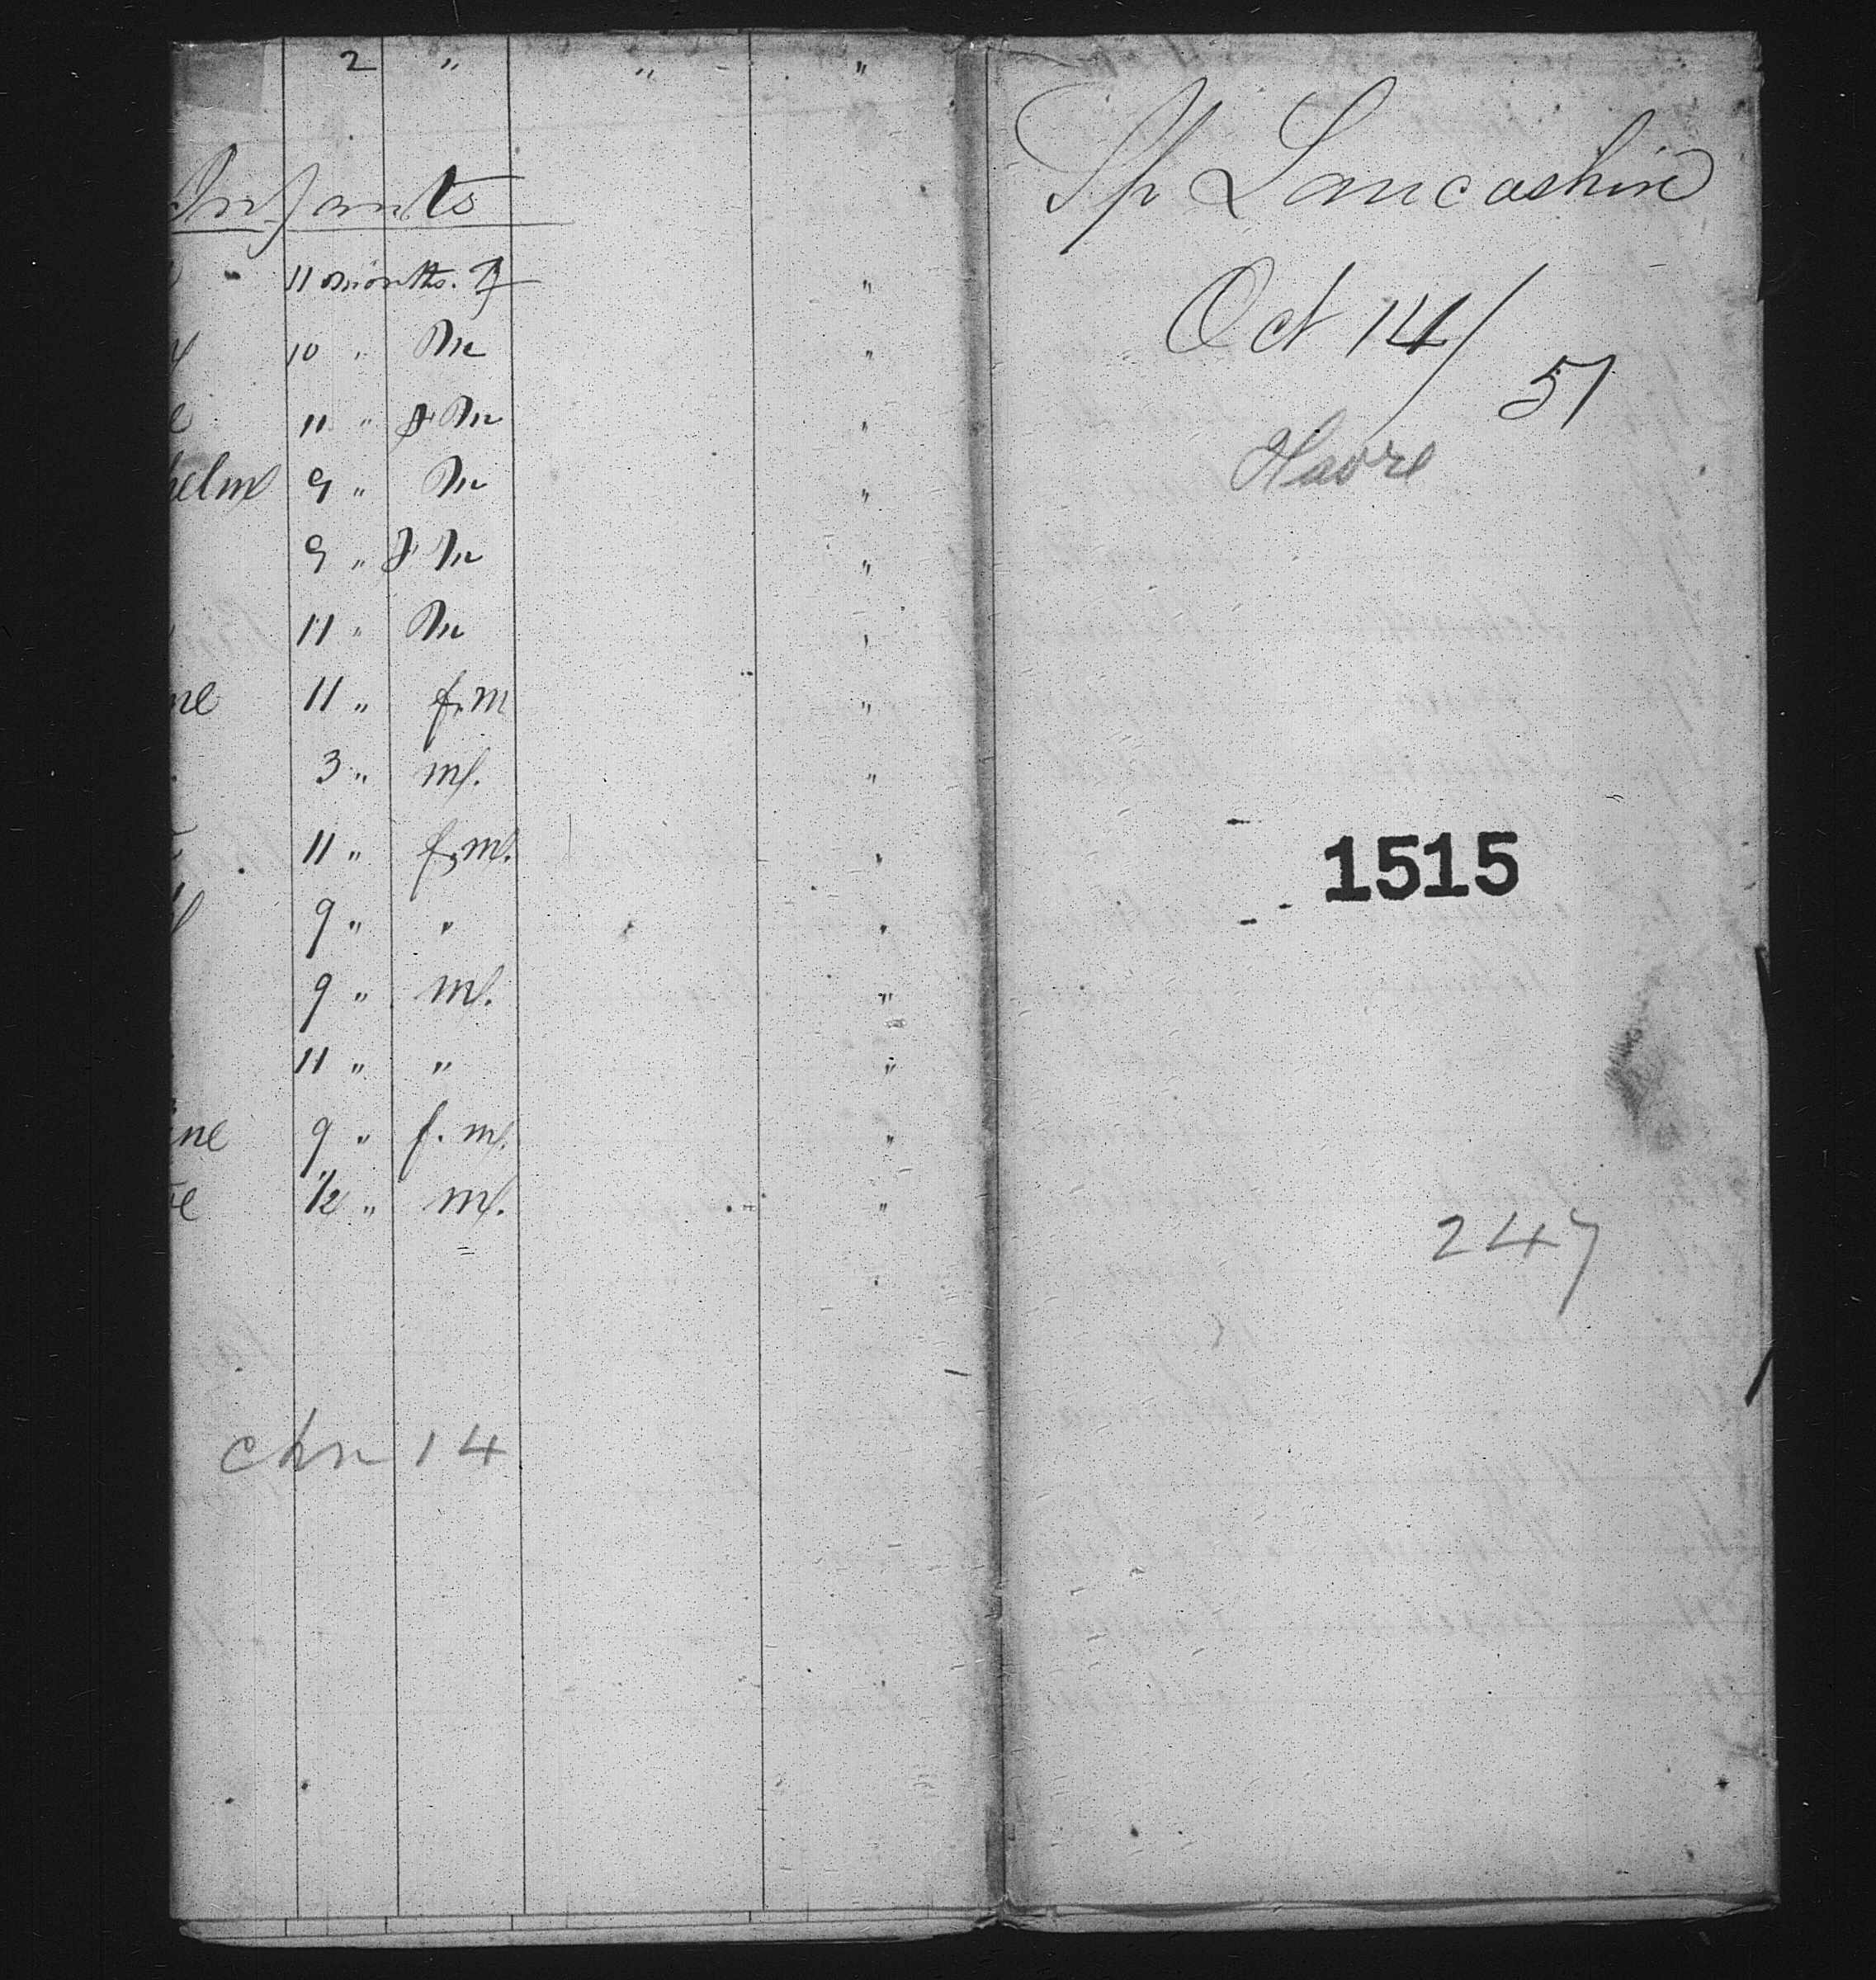 2 " " "
Infants
11 months. f "
10 " M "
11 " f M "
helm 9 " M "
9 " f M "
11 " M "
ne 11 " f. m "
3 " ml. "
11 " f. ml. "
9 " " "
9 " ml. "
11 " " "
ine 9 " f. ml. "
e 1/2 " ml. "
chn 14
Sp Lancashire
Oct 14/51
Havre
1515
247